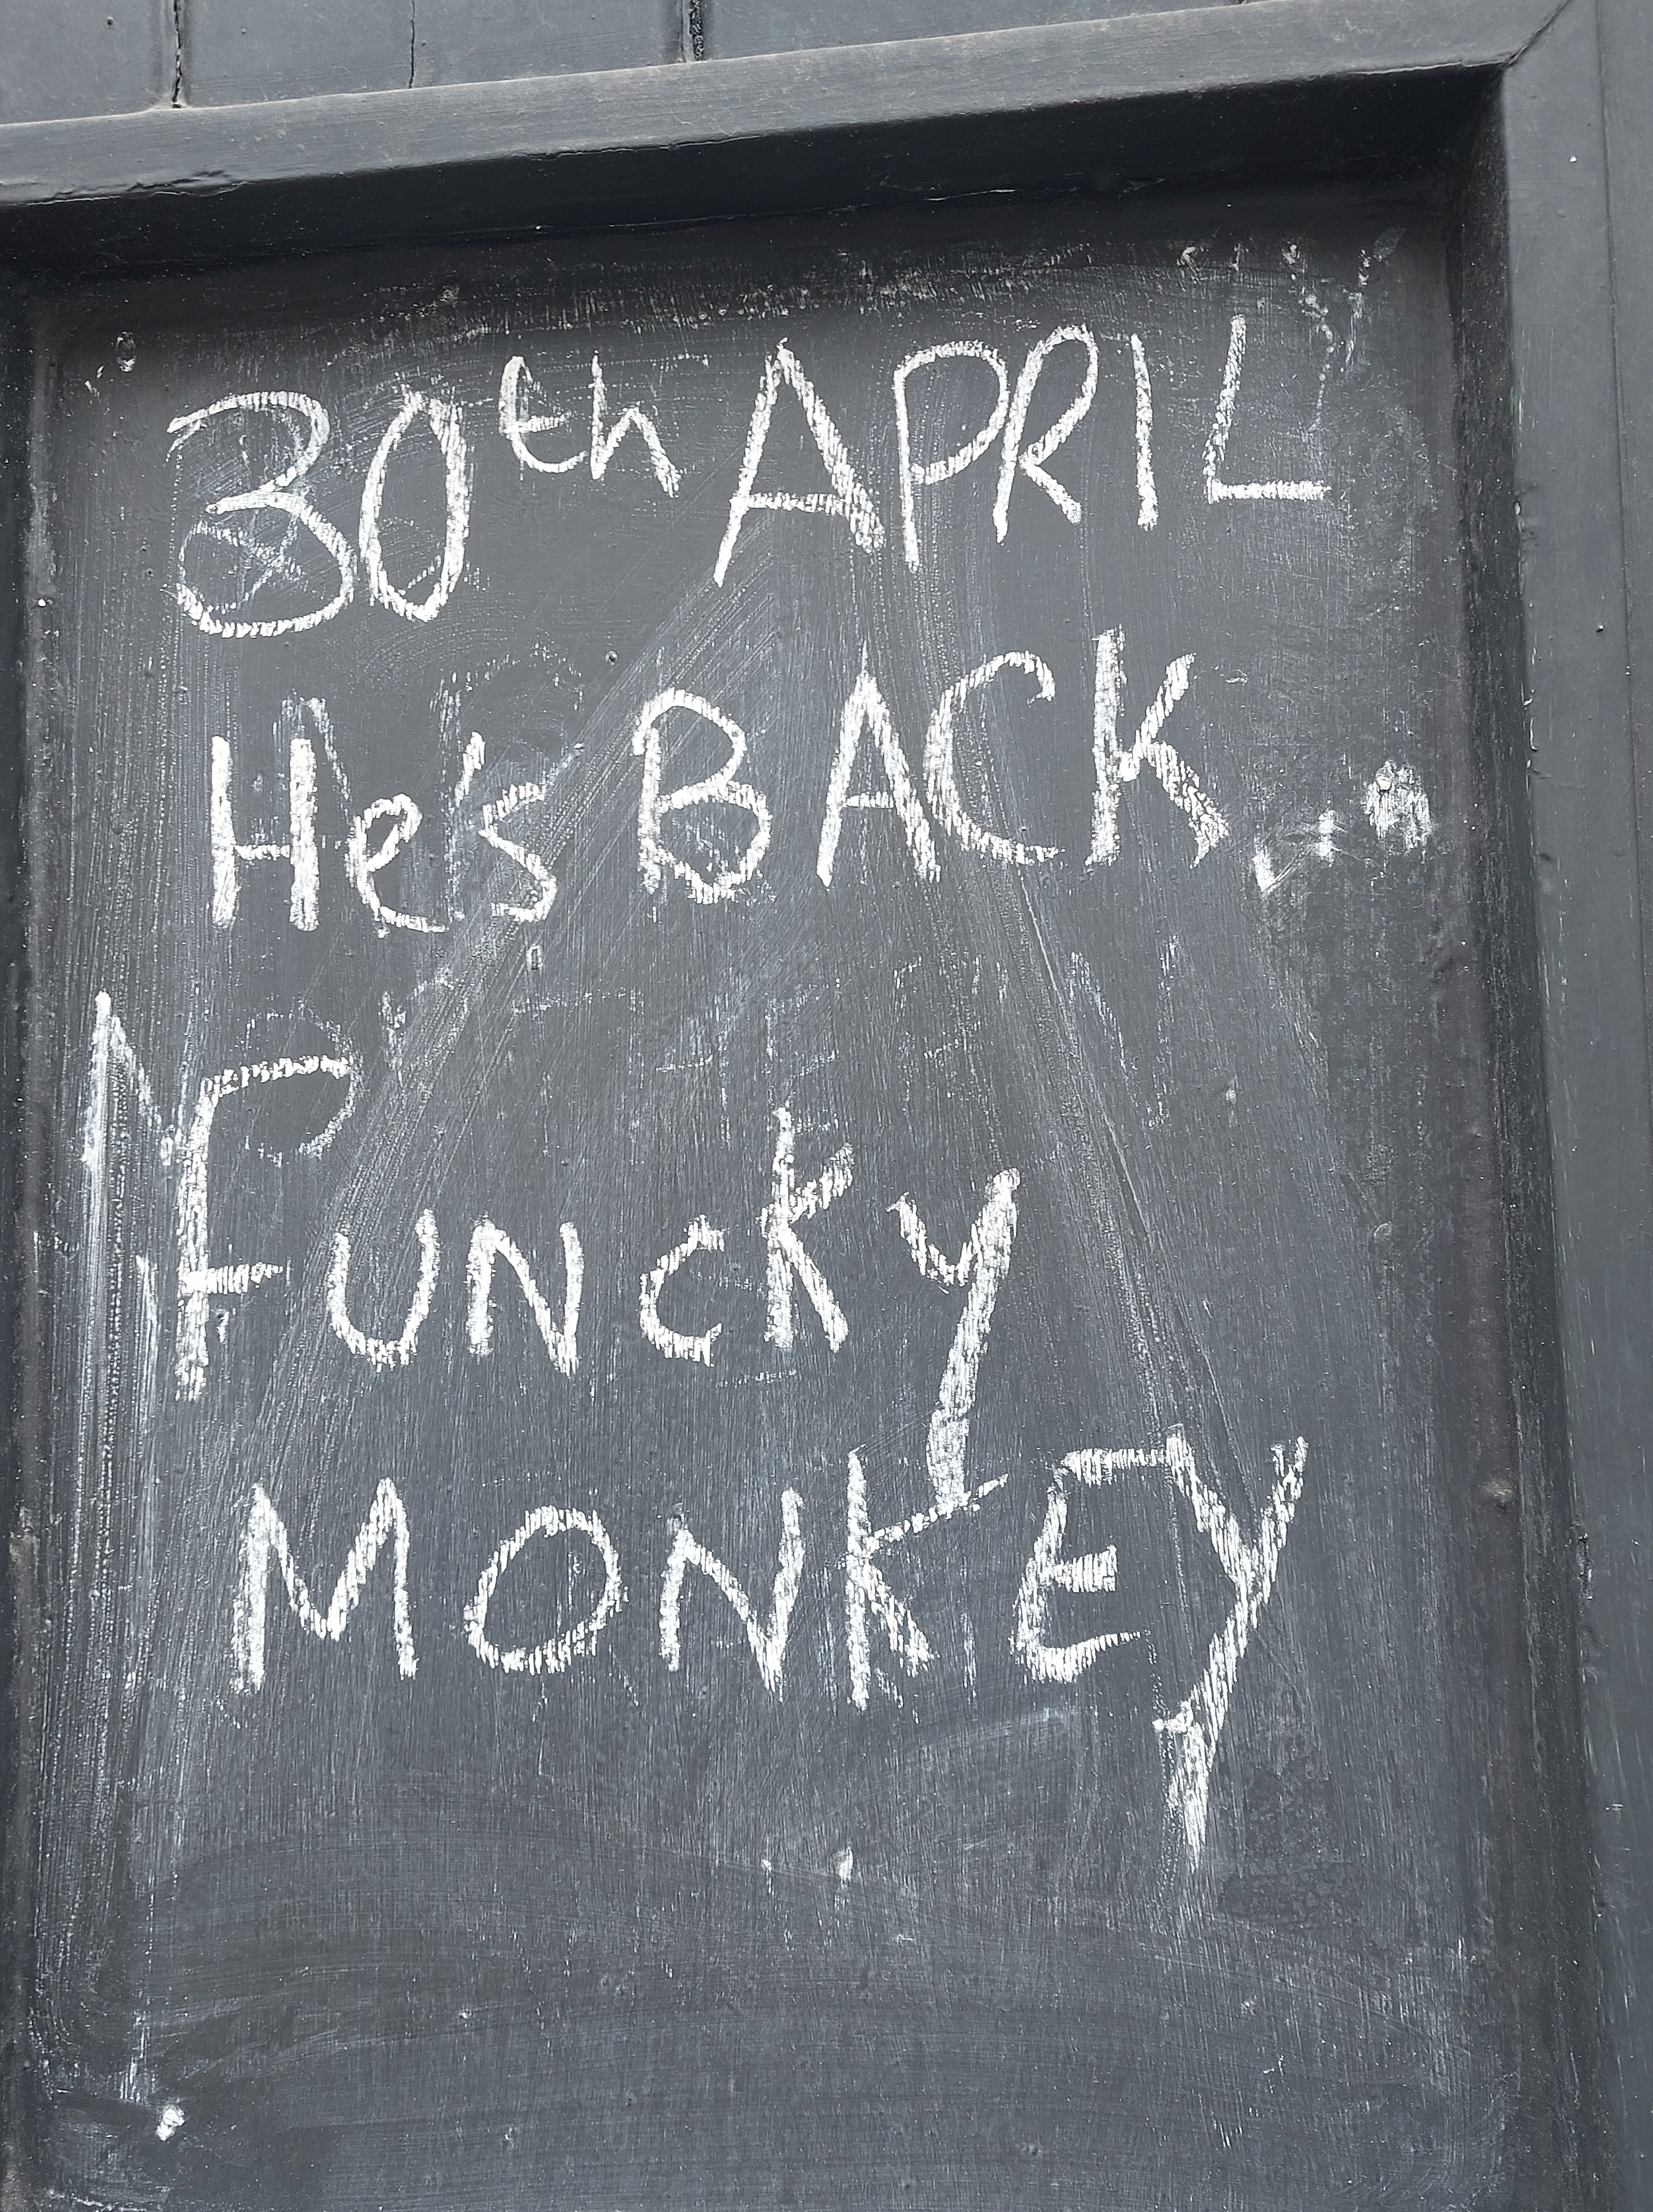 30th APRIL
He's BACK...
FUNCKY
MONKEY